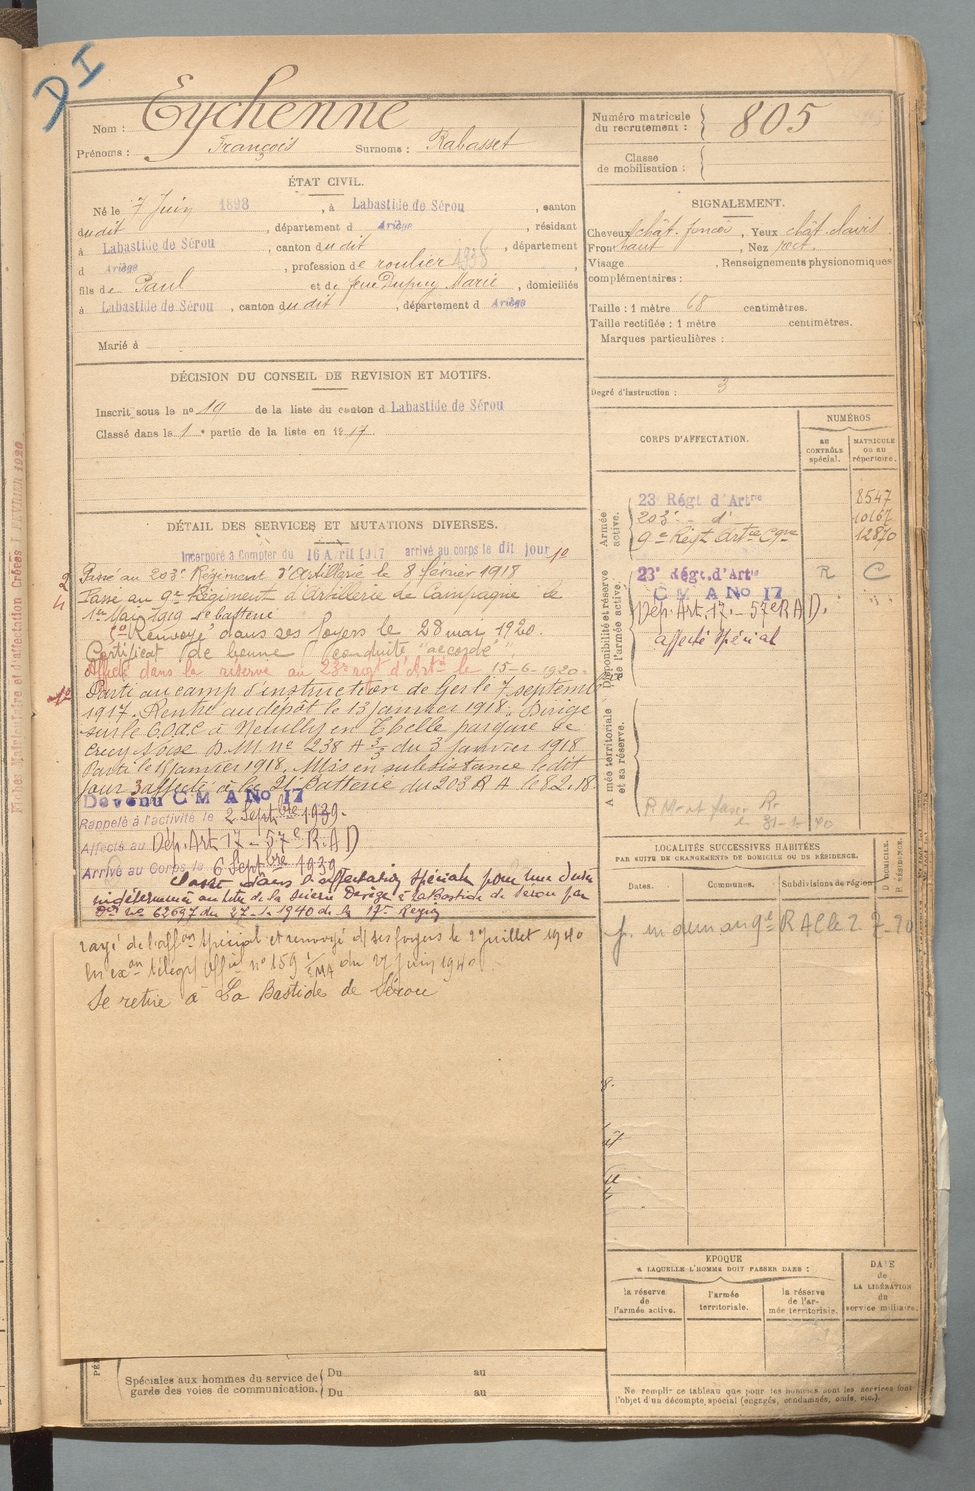 DI
Nom : Eychenne
Prénoms : François Surnoms : Rabasset
Numéro matricule du recrutement : 805
Classe de mobilisation :
ÉTAT CIVIL.
Né le 7 Juin 1898, à Labastide de Sérou, canton
dudit, département d Ariège, résidant
à Labastide de Sérou, canton dudit, département
d Ariège, profession de roulier 1938
fils de Paul et de feue Dupuy Marie, domiciliés
à Labastide de Sérou, canton dudit, département d Ariège
Marié à
SIGNALEMENT.
Cheveux chât. foncés, Yeux chât. clairs
Front haut, Nez rect.
Visage, Renseignements physionomiques
complémentaires :
Taille : 1 mètre 68 centimètres.
Taille rectifiée : 1 mètre centimètres.
Marques particulières :
Degré d'instruction : 3
DÉCISION DU CONSEIL DE REVISION ET MOTIFS.
Inscrit sous le no 19 de la liste du canton d Labastide de Sérou
Classé dans la 1e partie de la liste en 1917.
DÉTAIL DES SERVICES ET MUTATIONS DIVERSES.
Incorporé à Compter du 16 Avril 1917 arrivé au corps le dit jour
Passé au 203e Régiment d'Artillerie le 8 février 1918
Passé au 9e Régiment d'Artillerie de Campagne le
1er Mai 1919 1e batterie
Renvoyé dans ses foyers le 28 mai 1920.
Certificat de bonne conduite "accordé"
Affecté dans la réserve au 23e regt d'Artie le 15-6-1920.
Parti au camp d'instruction de Ger le 7 septembre
1917. Rentré au dépôt le 13 Janvier 1918. Dirigé
sur le C.O.A.C à Neuilly en Thelle parc de
Crecy D.M. no 238 A 3/3 du 3 Janvier 1918
Parti le Janvier 1918. Mis en subsistance le dit
jour affecté à la 21e Batterie du 203 R A le 8.2.18.
Devenu C M A No 17
Rappelé à l'activité le 2 Septbre 1939.
Affecté au Dép. Art 17 - 57e R.A.D
Arrivé au Corps le 6 Septbre 1939
Classé dans l'affectation spéciale pour une durée
indéterminée au titre de la Scierie à La Bastide de Serou par
Don no 62697 du 27-1-1940 de la 17e Région
rayé de l'affon spécial et renvoyé ds ses foyers le 2 Juillet 1940
en exon télégr offic no 159 1/EMA du 27 Juin 1940
Se retire à La Bastide de Sérou
CORPS D'AFFECTATION.
NUMÉROS
AU CONTRÔLE spécial.
MATRICULE OU AU répertoire.
Armée active.
23e Régt d'Artrie 8547
203e d° 10167
9e Régt Artie Cgne 12870
Disponibilité et réserve de l'armée active.
23e Régt. d'Artie R C
C M A No 17
Dép. Art. 17. - 57e R A D.
affecté Spécial
Armée territoriale et sa réserve.
le 31-1-40
LOCALITÉS SUCCESSIVES HABITÉES
PAR SUITE DE CHANGEMENTS DE DOMICILE OU DE RÉSIDENCE.
Dates. Communes. Subdivisions de région D DOMICILE. R RÉSIDENCE.
9e R A C le 2-7-20
ÉPOQUE
A LAQUELLE L'HOMME DOIT PASSER DANS :
la réserve de l'armée active.
l'armée territoriale.
la réserve de l'armée territoriale.
DATE de LA LIBÉRATION du service militaire.
Spéciales aux hommes du service de garde des voies de communication. Du au
Du au
Ne remplir ce tableau que pour les hommes dont les services font
l'objet d'un décompte spécial (engagés, condamnés, omis, etc.).